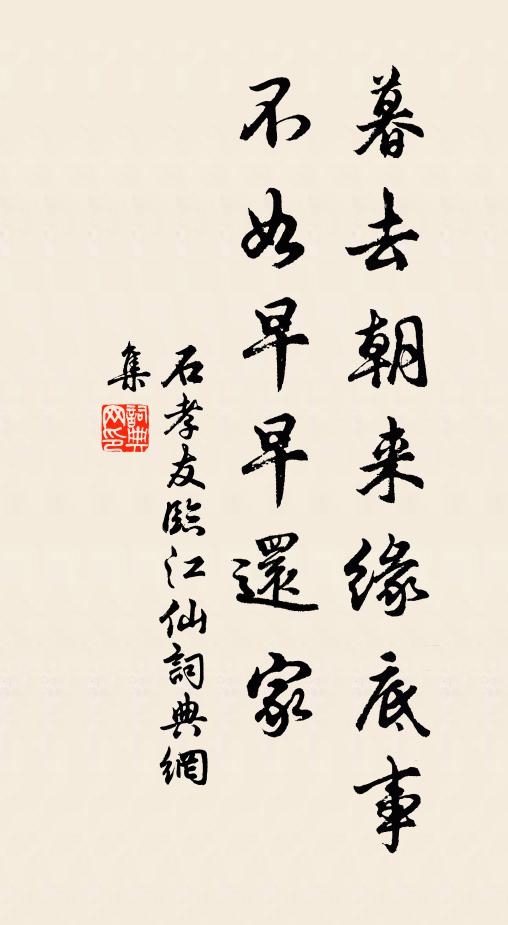 暮去朝来缘底事
不如早早還家
石孝友臨江仙詞典網
集
詞典
网印